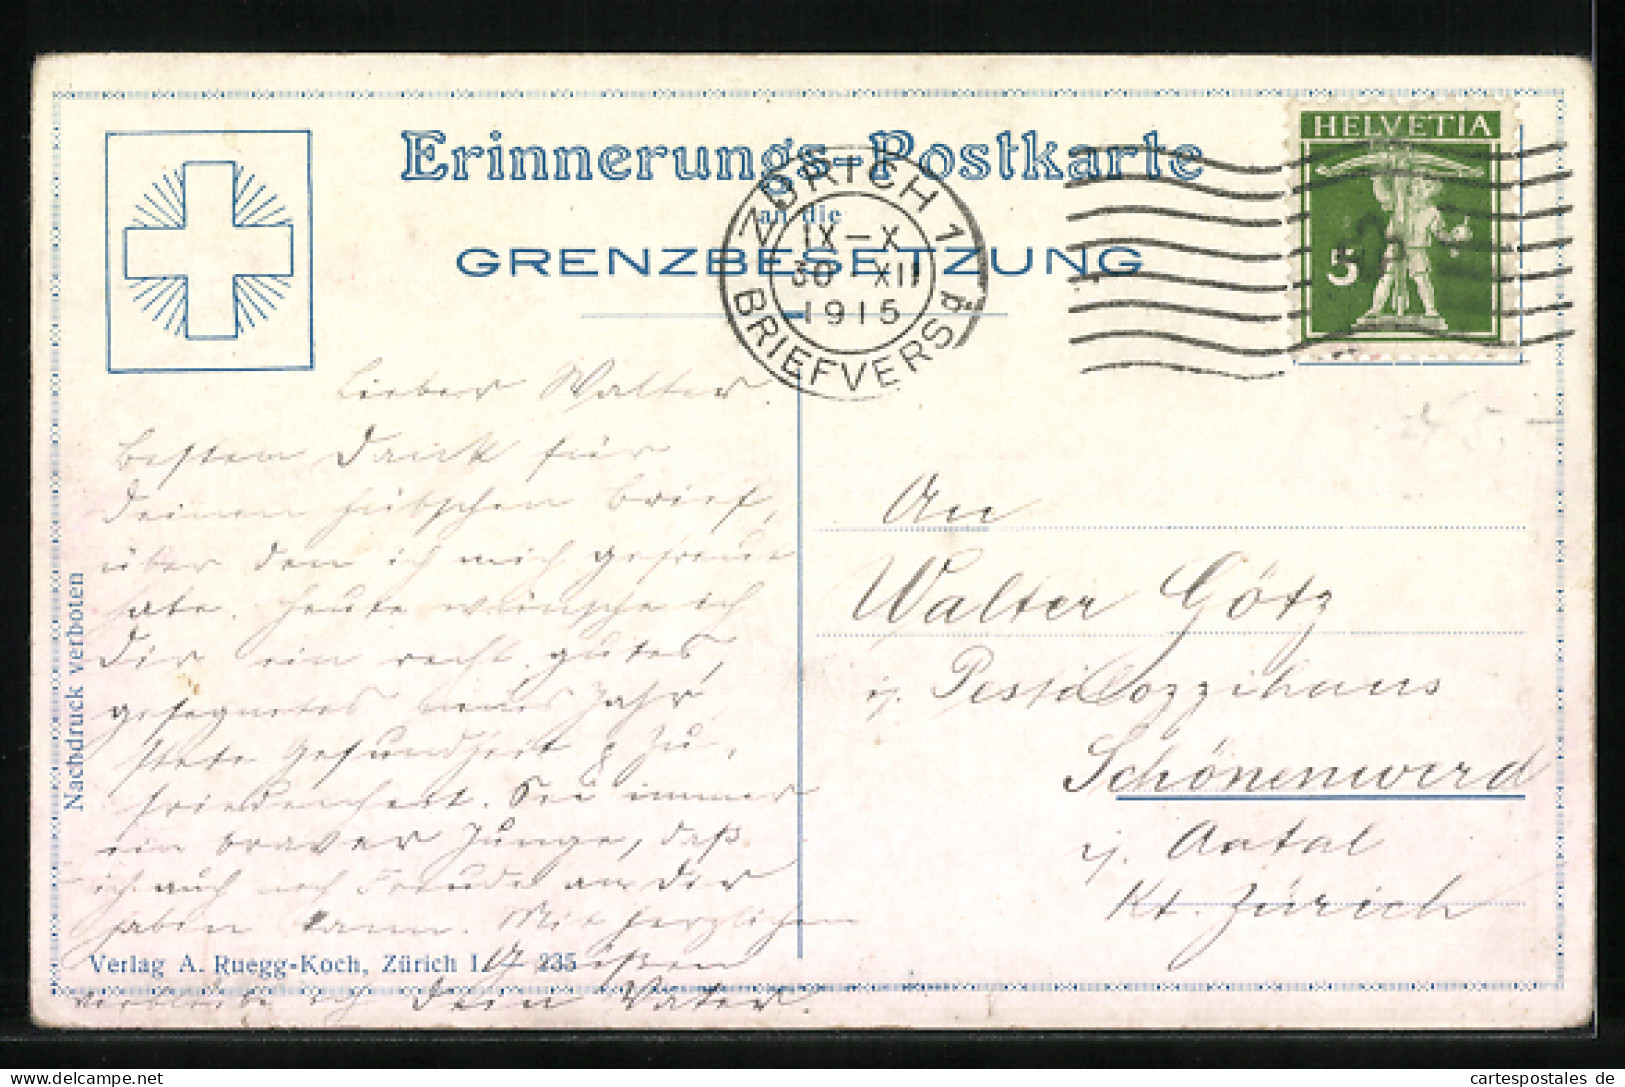 Erinnerungs-Postkarte
an die
GRENZBESETZUNG
HELVETIA
5
ZÜRICH 1
IX-X
30 XII
1915
BRIEFVERSd
Lieber Walter.
Besten Dank für
Deinen hübschen Brief,
über den ich mich gefreut
habe. Heute wünsche ich
Dir ein recht gutes,
gesegnetes neues Jahr,
stete Gesundheit & Zu-
friedenheit. Sei immer
ein braver Junge, daß
ich auch noch Freude an Dir
haben kann. Mit herzlichen
Grüßen
verbleibe ich Dein Vater.
An
Walter Götz
i/. Pestalozzihaus
Schönenwerd
i/. Aatal
Kt. Zürich
Nachdruck verboten
Verlag A. Ruegg-Koch, Zürich I. — 235
www.cartespostales.de
cartespostales.de